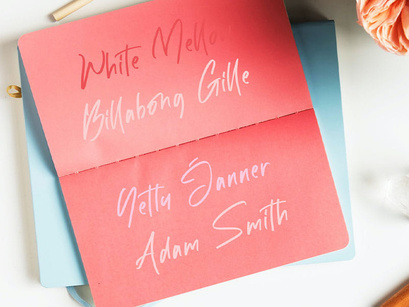 White Mello
Billabong Gille
Yetty Janner
Adam Smith